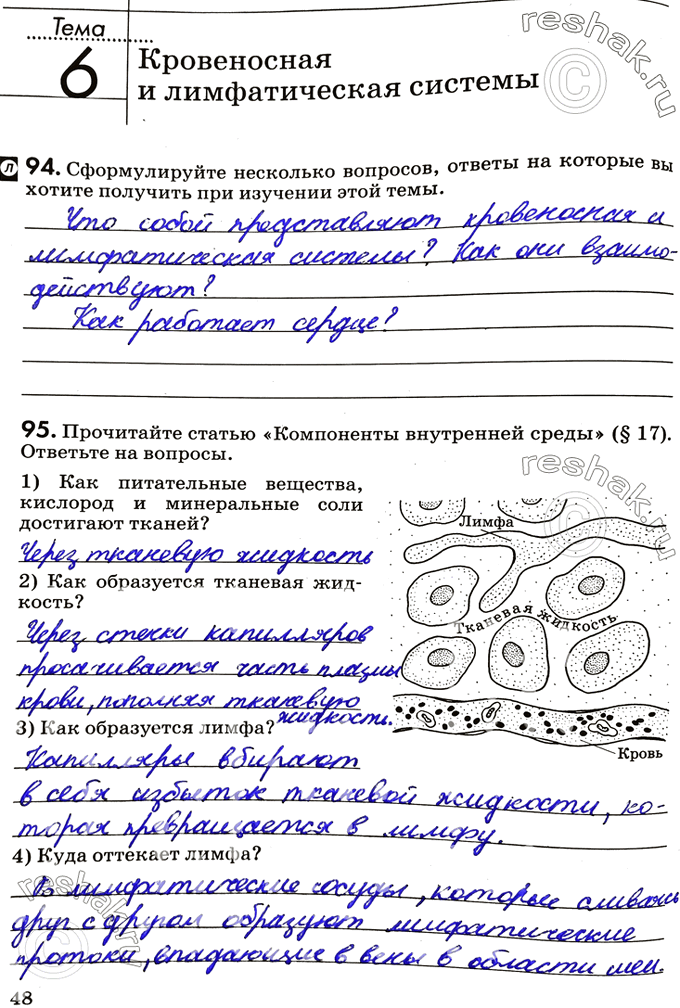 Тема
6
Кровеносная
и лимфатическая системы
reshak.ru
©
Л 94. Сформулируйте несколько вопросов, ответы на которые вы
хотите получить при изучении этой темы.
Что собой представляют кровеносная и
лимфатическая системы? Как они взаимо-
действуют?
Как работает сердце?
95. Прочитайте статью «Компоненты внутренней среды» (§ 17).
Ответьте на вопросы.
1) Как питательные вещества,
кислород и минеральные соли
достигают тканей?
Через тканевую жидкость
2) Как образуется тканевая жид-
кость?
Через стенки капилляров
просачивается часть плазмы
крови, пополняя тканевую
жидкость.
reshak.ru
©
Лимфа
Тканевая жидкость
Кровь
3) Как образуется лимфа?
Капилляры вбирают
в себя избыток тканевой жидкости, ко-
торая превращается в лимфу.
4) Куда оттекает лимфа?
В лимфатические сосуды, которые сливаясь
друг с другом образуют лимфатические
протоки, впадающие в вены в области шеи.
reshak.ru
©
48